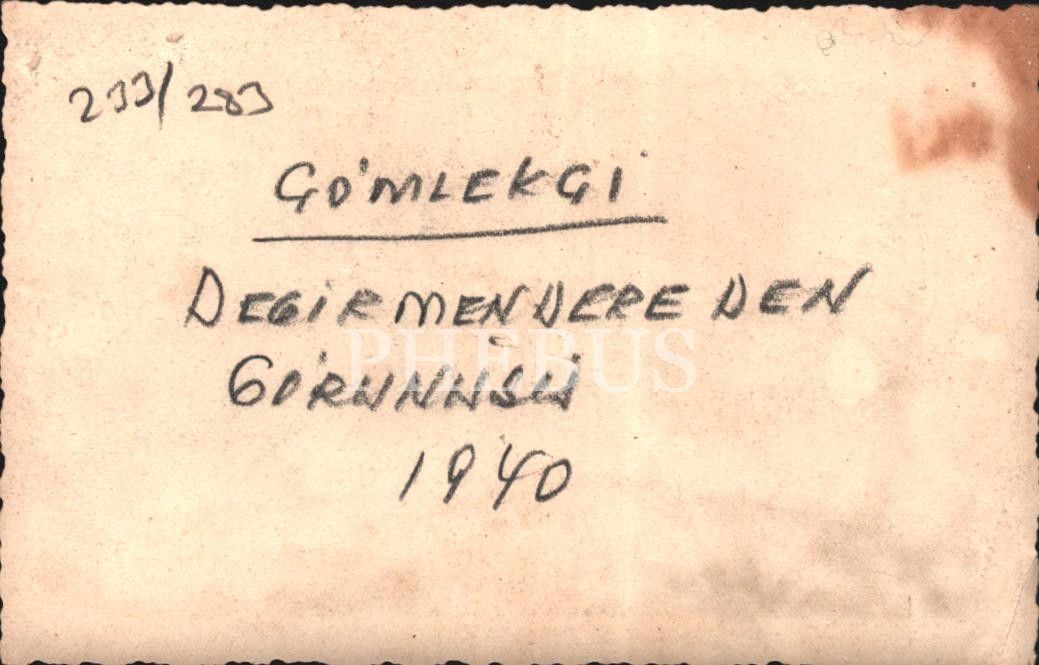 233/283
GÖMLEKGİ
DEGİRMENDEREDEN
GÖRÜNÜSÜ
1940
PHEBUS